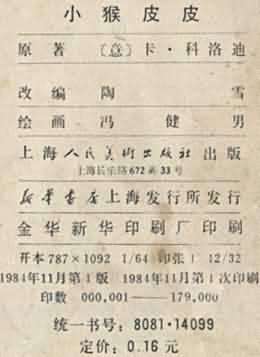 小猴皮皮
原著 〔意〕卡·科洛迪
改编 陶雪
绘画 冯健男
上海人民美术出版社 出版
上海长乐路672弄33号
新华书店上海发行所发行
金华新华印刷厂印刷
开本787×1092 1/64 印张1 12/32
1984年11月第1版 1984年11月第1次印刷
印数 000,001——179,000
统一书号：8081·14099
定价：0.16元